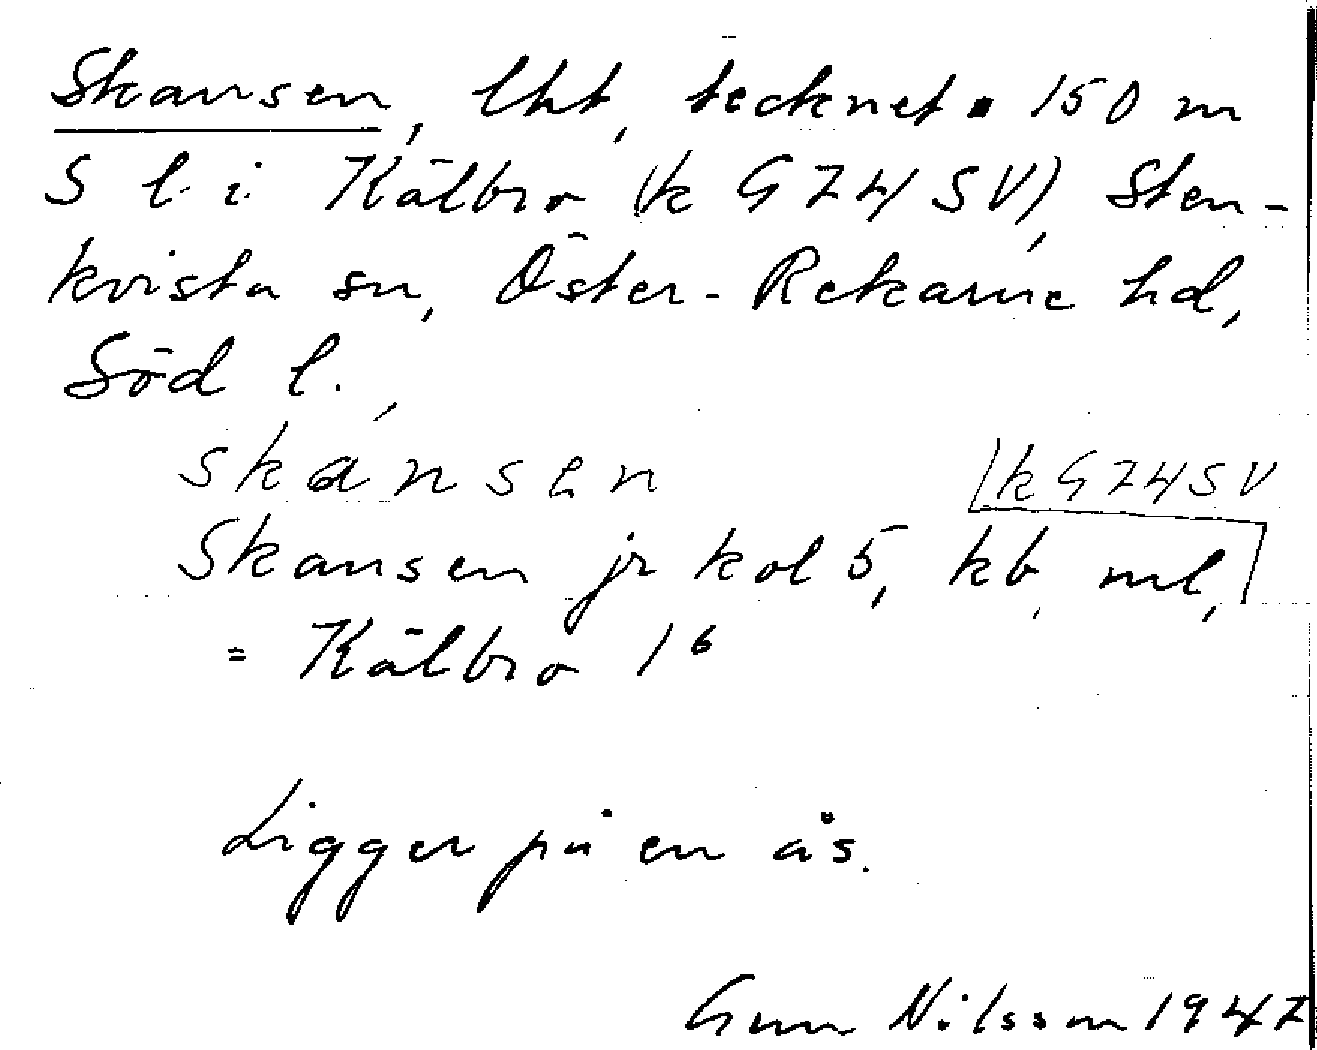 Skansen, lht, tecknet ▪ 150 m
S l. i. Kälbro (k G74SV), Sten-
kvista sn, Öster-Rekarne hd,
Söd l.,
skánsen
(k G74SV
Skansen jr kol 5, kb, ml,
= Kälbro 1⁶
Ligger på en ås.
Gun Nilsson 1947